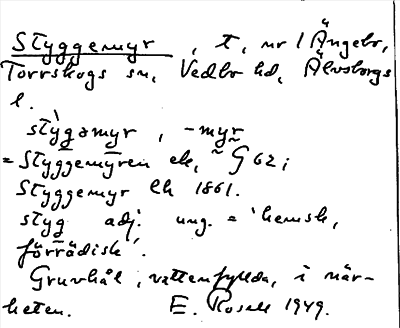 Styggemyr, t, nr 1 Ängebo,
Torrskogs sn, Vedbo hd, Älvsborgs
l.
stygamyr, -myr
= Styggemyren ek, G 62;
Styggemyr lh 1861.
styg adj. ung. = 'hemsk,
förrädisk'.
Gruvhål, vattenfyllda, i när-
heten. E. Rosell 1949.